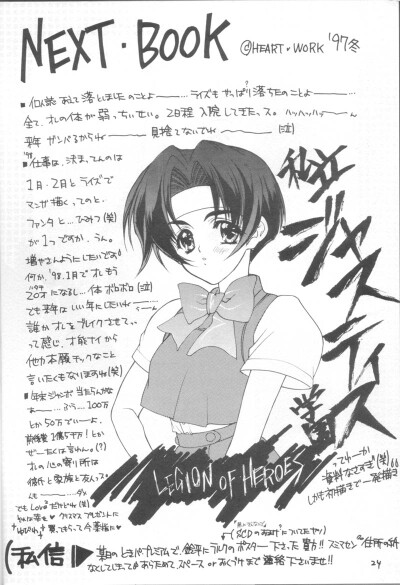 NEXT・BOOK
@HEART♥WORK '97冬
落としましたのことよー
ライズもやっぱり落ちたのことよー
全て、オレの体が弱っちいせい。2日程入院してきたっス。ハッハッハッーん
来年ガンバるからねー 見捨てないでねー (泣)
■仕事は、決まってんのは
1月・2日とライズで
マンガ描くってのと、
ファンタと… ひみつ(笑)
が1つですか、うん。
増やさんようにしたいです
何か、'98.1月でオレもう
20才になるし…体ボロボロ(泣)
でも来年はいい年にしたいねー
誰かオレをブレイクさせて、、
って感じ、才能ナイから
他力本願チックなこと
言いたくもなりますわ(笑)
■年末ジャンボ当たらんかな
ぁー…ふぅ…100万
とか50万でいーよ。
前後賞1億5千万!とか
ぜーたくは言わん。(?)
オレの心の寄り所は
猫と家族と友人って。
んもー
でもLoveが
クリスマスプレゼントに
買ってもらって今幸福に♥
私立
ジャスティス
学園
LEGION OF HEROES
ってわーか
資料なさすぎ(笑)
しかも初描きで一発描き
(私信)▶
のポスター下さった貴方!! スミマセン 住所の紙
なくしてしまって あらためて、スペース or おくづけまで連絡下さいませ!!
24